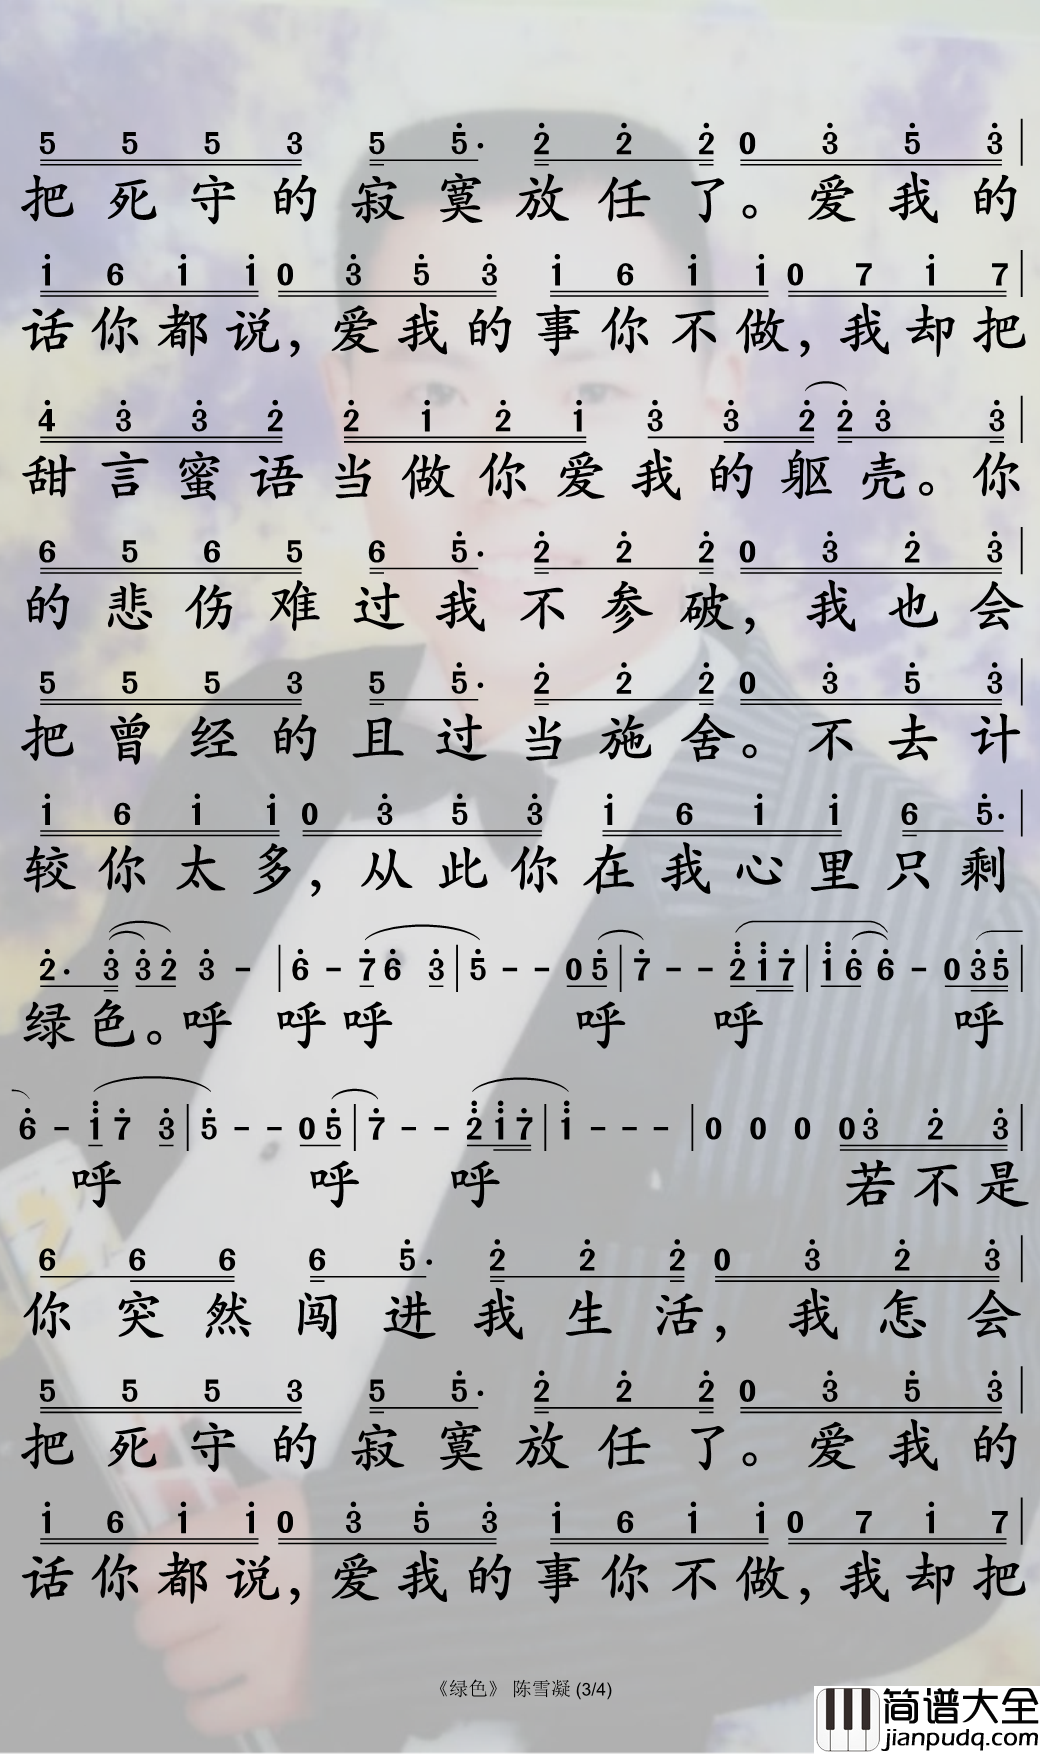 5 5 5 3 5 5. 2 2 2 0 3 5 3
把死守的寂寞放任了。爱我的
1 6 1 1 0 3 5 3 1 6 1 1 0 7 1 7
话你都说，爱我的事你不做，我却把
4 3 3 2 2 1 2 1 3 3 2 2 3 3
甜言蜜语当做你爱我的躯壳。你
6 5 6 5 6 5. 2 2 2 0 3 2 3
的悲伤难过我不参破，我也会
5 5 5 3 5 5. 2 2 2 0 3 5 3
把曾经的且过当施舍。不去计
1 6 1 1 0 3 5 3 1 6 1 1 6 5.
较你太多，从此你在我心里只剩
2. 3 3 2 3 - | 6 - 7 6 3 | 5 - - 0 5 | 7 - - 2 1 7 | 1 6 6 - 0 3 5 |
绿色。呼 呼 呼 呼 呼 呼
6 - 1 7 3 | 5 - - 0 5 | 7 - - 2 1 7 | 1 - - - | 0 0 0 0 3 2 3 |
呼 呼 呼 若不是
6 6 6 6 5. 2 2 2 0 3 2 3
你突然闯进我生活，我怎会
5 5 5 3 5 5. 2 2 2 0 3 5 3
把死守的寂寞放任了。爱我的
1 6 1 1 0 3 5 3 1 6 1 1 0 7 1 7
话你都说，爱我的事你不做，我却把
《绿色》 陈雪凝 (3/4)
简谱大全
jianpudq.com